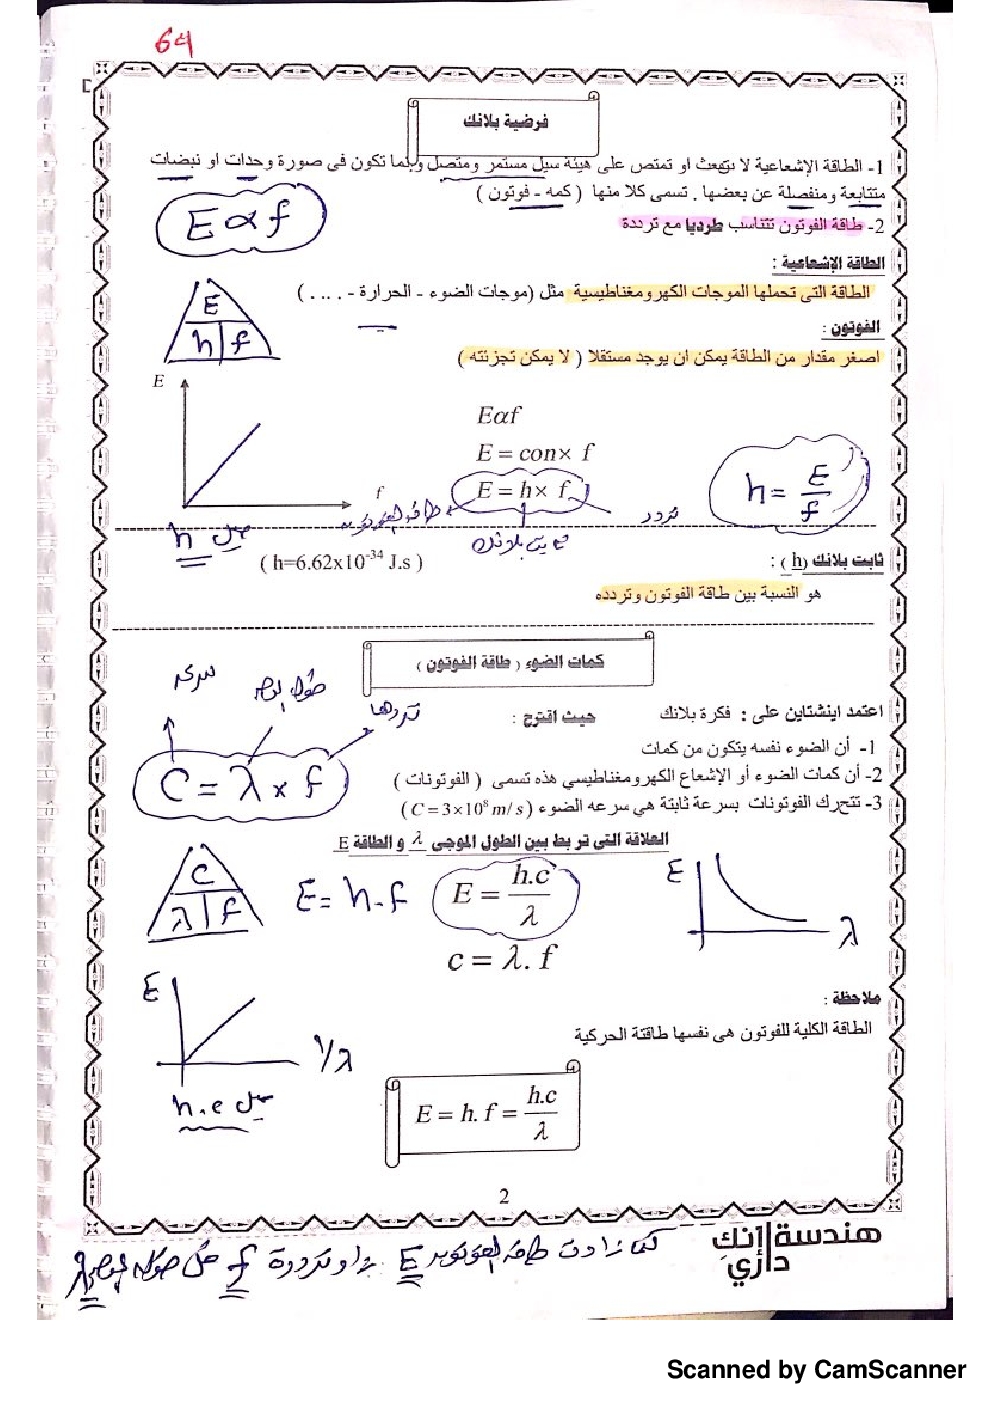 64
فرضية بلانك
1- الطاقة الإشعاعية لا تنبعث او تمتص على هيئة سيل مستمر ومتصل وإنما تكون فى صورة وحدات او نبضات
متتابعة ومنفصلة عن بعضها . تسمى كلا منها ( كمه - فوتون )
2- طاقة الفوتون تتناسب طرديا مع ترددة
E α f
الطاقة الإشعاعية :
الطاقة التى تحملها الموجات الكهرومغناطيسية مثل (موجات الضوء - الحرارة - .... )
E
h f
الفوتون :
اصغر مقدار من الطاقة يمكن ان يوجد مستقلا ( لا يمكن تجزئته )
E
Eαf
E = con× f
E = h× f
f
h = E/f
تردد
طاقة الفوتون
ثابت بلانك
ميل h
ثابت بلانك (h) :
( h=6.62x10⁻³⁴ J.s )
هو النسبة بين طاقة الفوتون وتردده
كمات الضوء ( طاقة الفوتون )
سرعه
تردها
اعتمد اينشتاين على : فكرة بلانك حيث اقترح :
1- أن الضوء نفسه يتكون من كمات
2- أن كمات الضوء أو الإشعاع الكهرومغناطيسي هذه تسمى ( الفوتونات )
3- تتحرك الفوتونات بسرعة ثابتة هي سرعه الضوء (C = 3×10⁸ m/s)
C = λ × f
العلاقة التى تربط بين الطول الموجى λ و الطاقة E
C
λ f
E = h.f
E = h.c/λ
c = λ. f
E
λ
E
1/λ
ميل h.c
ملاحظة :
الطاقة الكلية للفوتون هى نفسها طاقتة الحركية
E = h. f = h.c/λ
2
هندسة إنك
داري
كلما زادت طاقة الفوتون E زاد ترددة f قل طول الموجى λ
Scanned by CamScanner